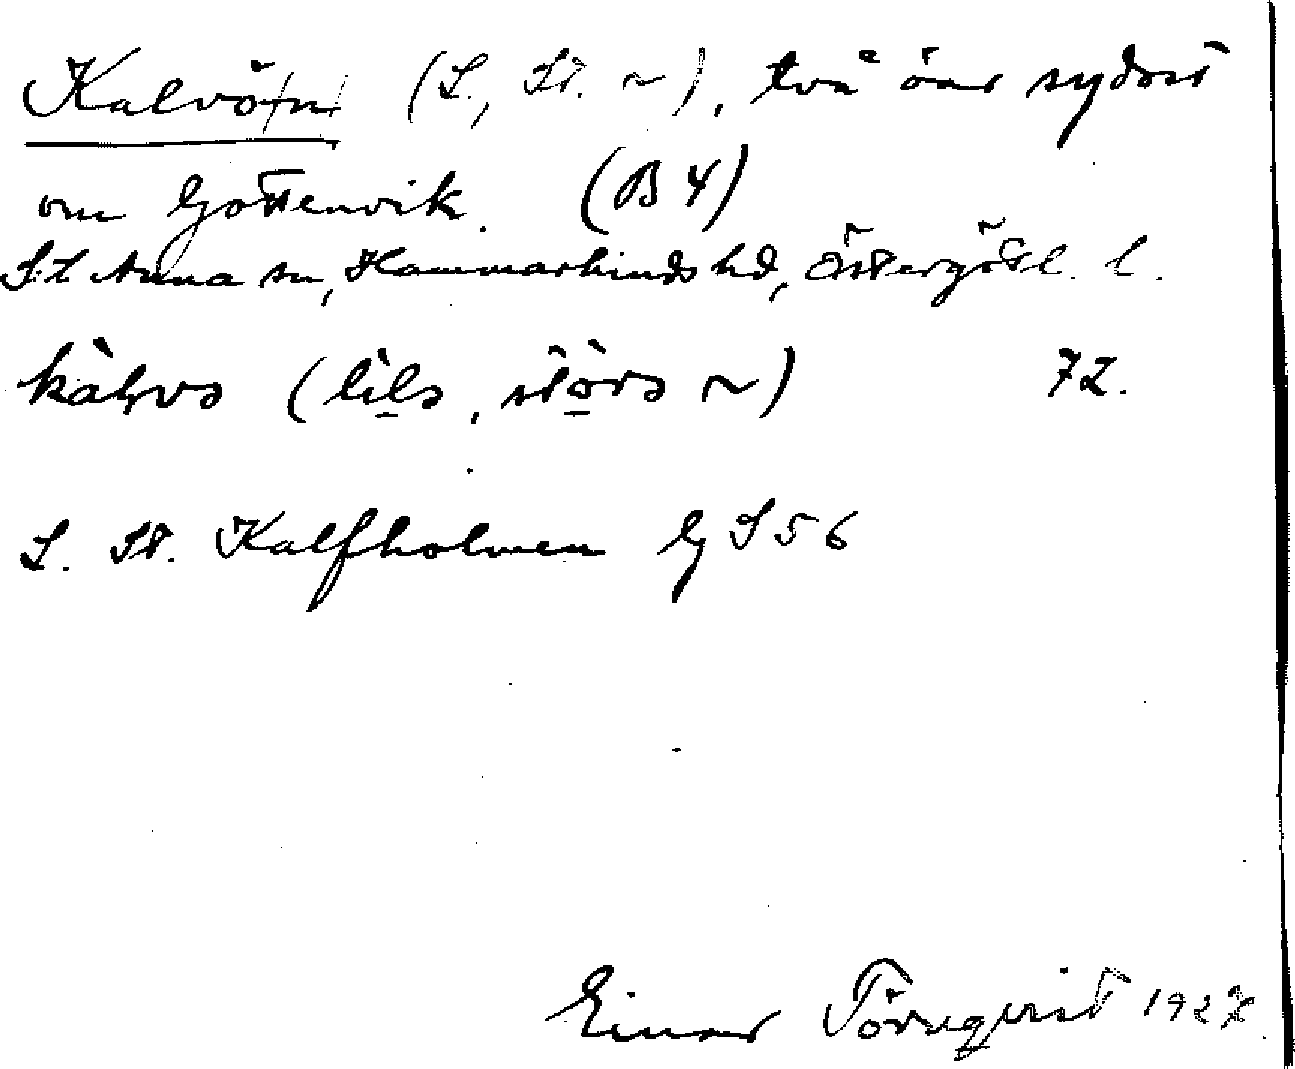 Kalvö/n/ (L., St. ~), två öar sydost
om Gottenvik. (B 4)
S:t Anna sn, Hammarkinds hd, Östergötl. l.
kàḷvə (lìlə, stòrə ~) 72.
L. St. Kalfholmen G S 56
Einar Törnqvist 1927